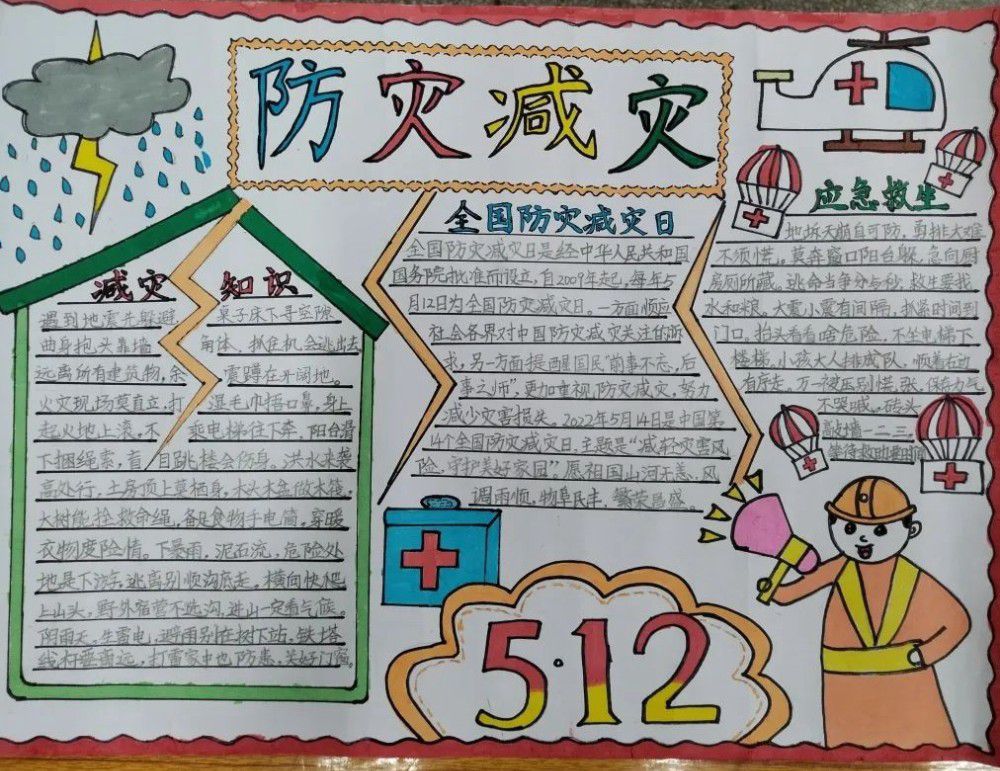 防灾减灾
减灾 知识
遇到地震先躲避 桌子床下寻空隙
曲身抱头靠墙 角体、抓住机会逃出去
远离所有建筑物,余 震蹲在开阔地。
火灾现场莫直立,打 湿毛巾捂口鼻,身上
起火地上滚,不 乘电梯往下奔,阳台滑
下捆绳索,盲目跳楼会防身。洪水来袭
高处行,土房顶上莫栖身,木头木盆做木筏。
大树能拴救命绳,备足食物手电筒,穿暖
衣物度险情。下暴雨,泥石流,危险处
地是下游,逃离别顺沟底走,横向快爬
上山头,野外宿营不选沟,进山一定看气候。
阴雨天,生雷电,避雨别在树下站,铁塔
线杆要离远,打雷家中也防患,关好门窗。
全国防灾减灾日
全国防灾减灾日是经中华人民共和国
国务院批准而设立,自2009年起,每年5
月12日为全国防灾减灾日。一方面顺应
社会各界对中国防灾减灾关注的诉
求,另一方面提醒国民“前事不忘,后
事之师”,更加重视防灾减灾,努力
减少灾害损失。2022年5月14日是中国第
14个全国防灾减灾日,主题是“减轻灾害风
险,守护美好家园”愿祖国山河无恙,风
调雨顺,物阜民丰,繁荣昌盛。
应急救生
地坼天崩自可防,勇排大难
不须慌。莫奔窗口阳台躲,急向厨
房厕所藏。逃命当争分与秒,救生要找
水和粮。大震小震有间隔,抓紧时间到
门口。抬头看看啥危险,不坐电梯下
楼梯,小孩大人排成队,顺着右边
有序走,万一被压别慌张,保存力气
不哭喊。砖头
敲墙一二三,
等待救助要时间
5·12